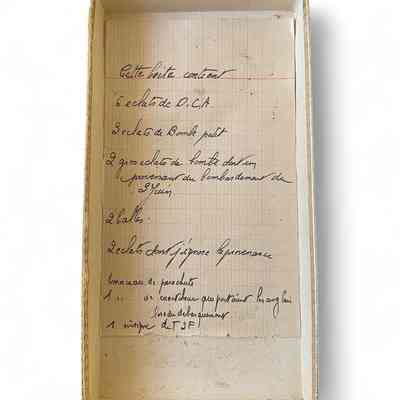 Cette boite contient
5 eclats de D.C.A
3 eclats de Bombe petit
2 gros eclats de bombe dont un
provenant du bombardement du
2 Juin
2 balles.
2 eclats dont j'ignore la provenance
1 morceau de parachute
1 " de cordeau que portaient les anglais
lors du debarquement
1 insigne de T S F